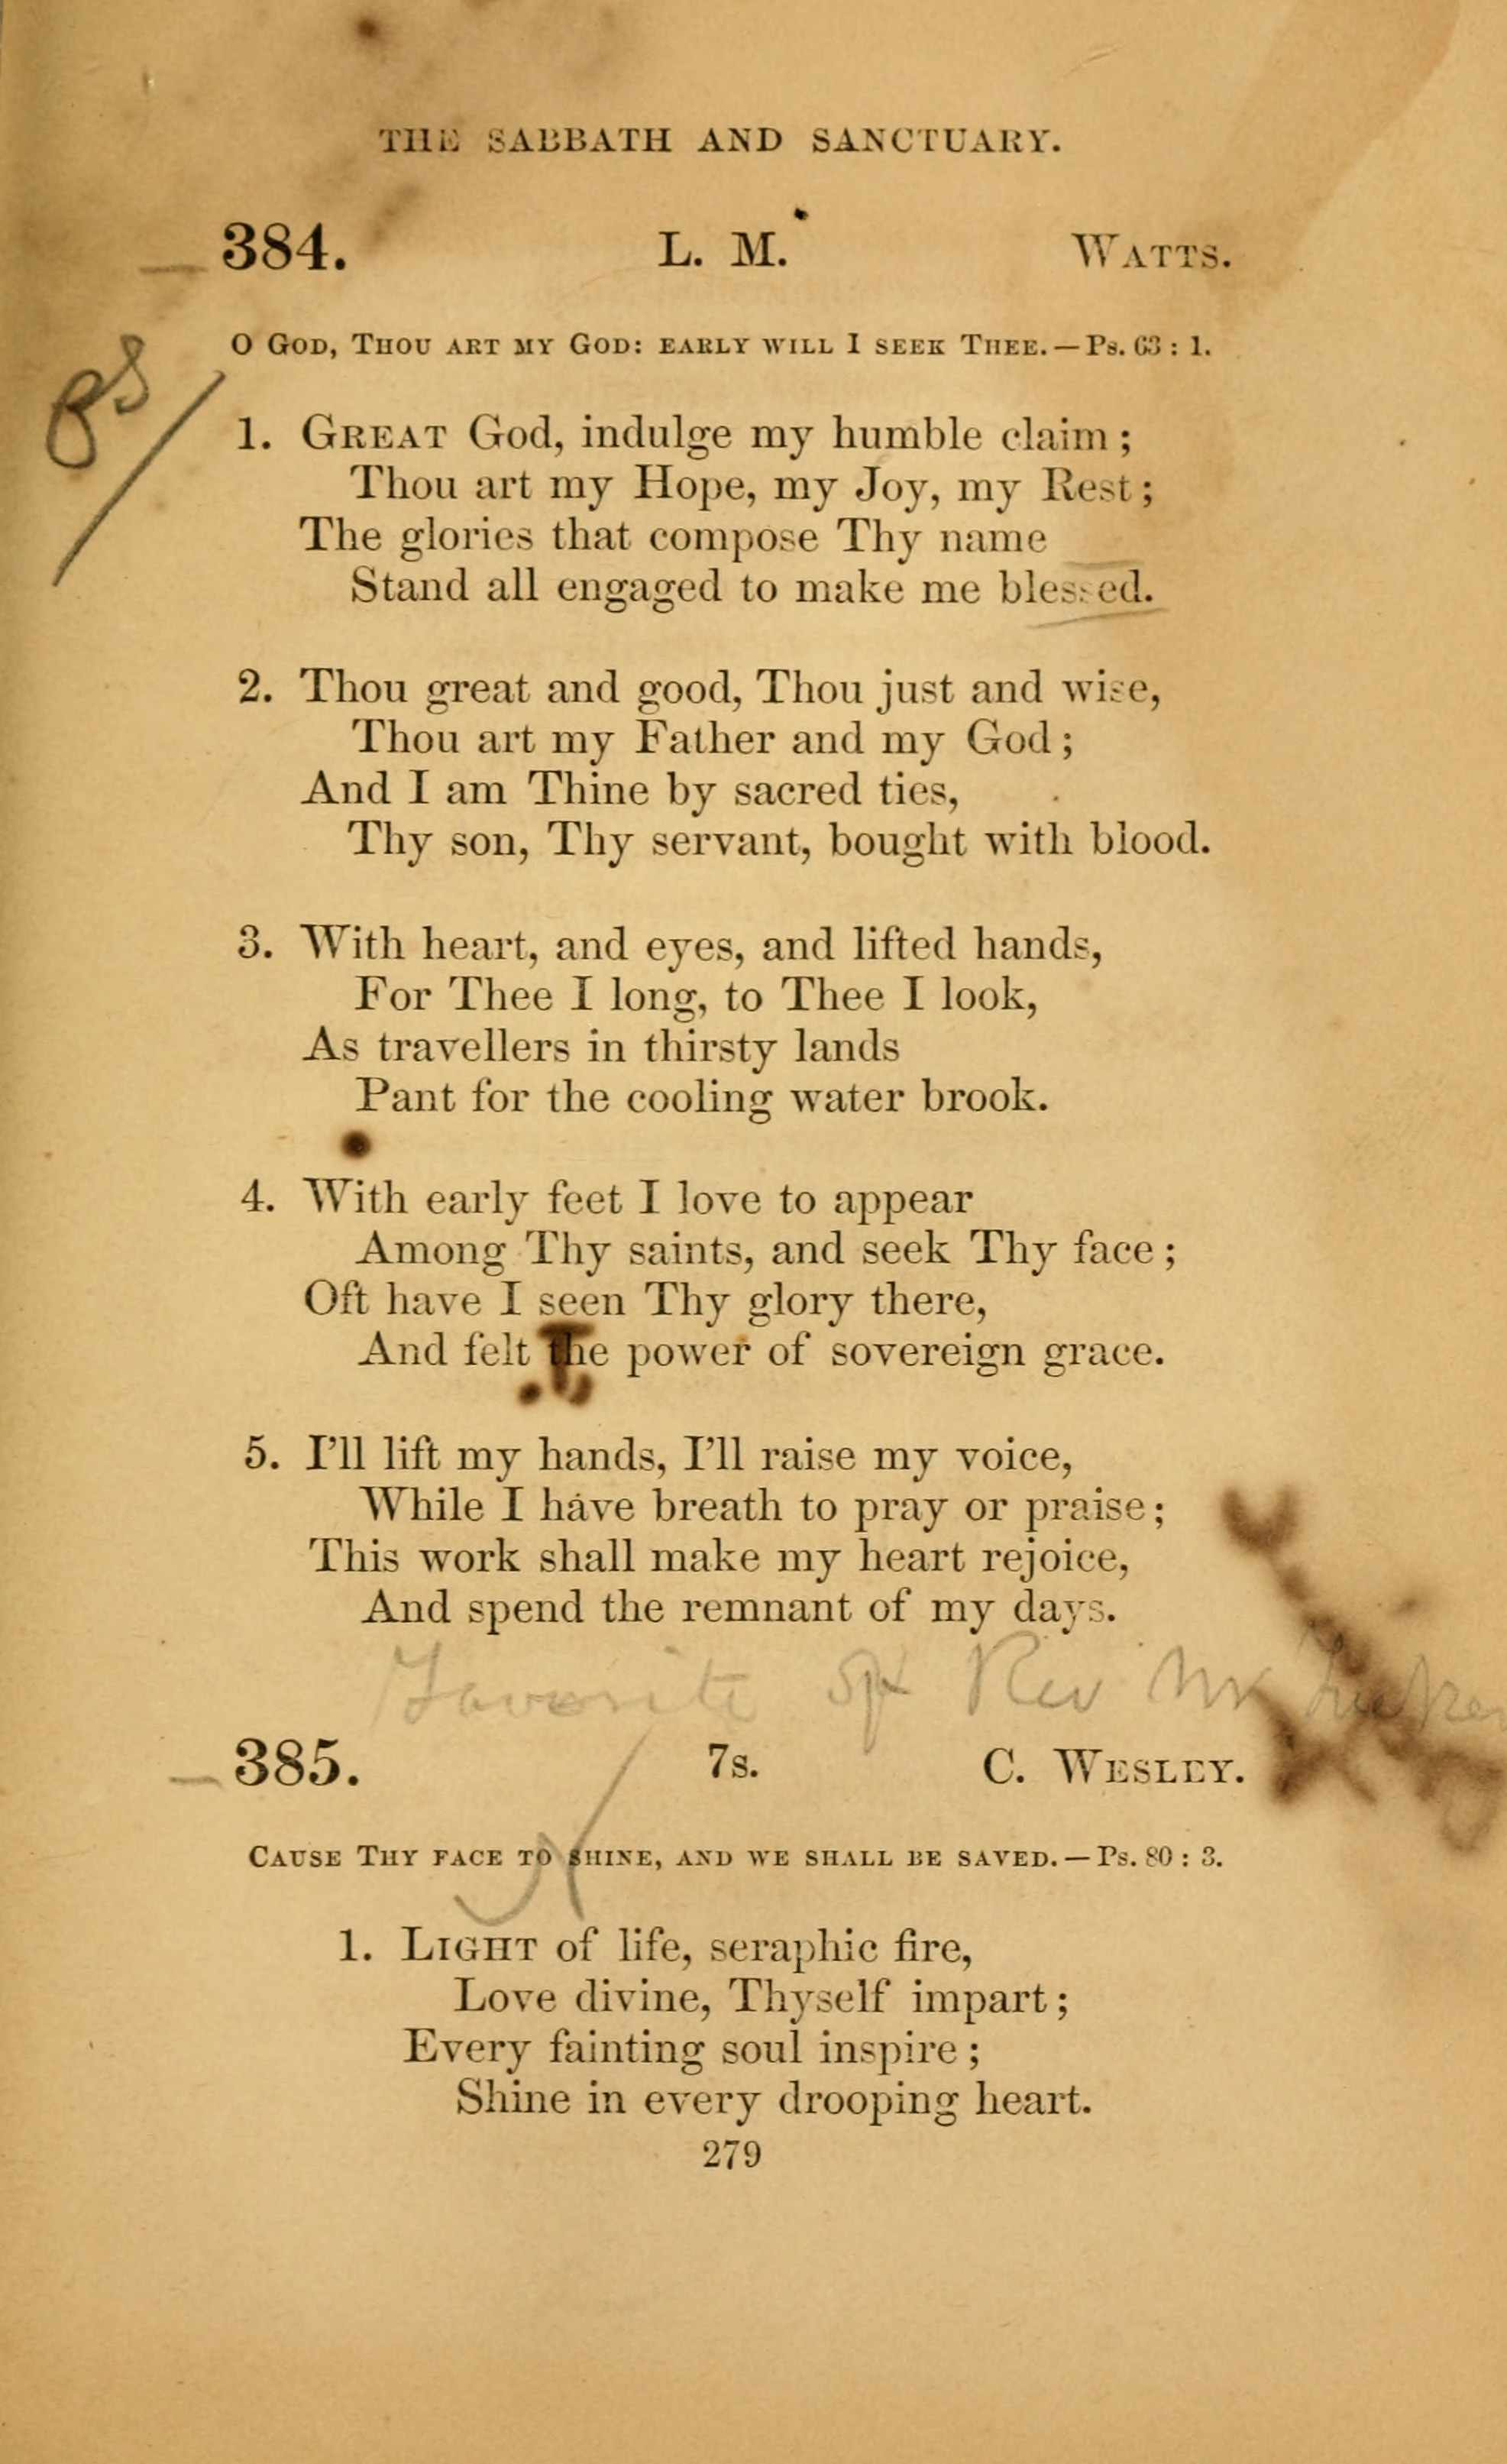 THE SABBATH AND SANCTUARY.
384. L. M. WATTS.
O GOD, THOU ART MY GOD: EARLY WILL I SEEK THEE.—Ps. 63 : 1.
8s
1. GREAT God, indulge my humble claim ;
Thou art my Hope, my Joy, my Rest ;
The glories that compose Thy name
Stand all engaged to make me blessed.
2. Thou great and good, Thou just and wise,
Thou art my Father and my God ;
And I am Thine by sacred ties,
Thy son, Thy servant, bought with blood.
3. With heart, and eyes, and lifted hands,
For Thee I long, to Thee I look,
As travellers in thirsty lands
Pant for the cooling water brook.
4. With early feet I love to appear
Among Thy saints, and seek Thy face ;
Oft have I seen Thy glory there,
And felt the power of sovereign grace.
5. I'll lift my hands, I'll raise my voice,
While I have breath to pray or praise ;
This work shall make my heart rejoice,
And spend the remnant of my days.
Favorite of Rev Mr
385. 7s. C. WESLEY.
CAUSE THY FACE TO SHINE, AND WE SHALL BE SAVED.—Ps. 80 : 3.
1. LIGHT of life, seraphic fire,
Love divine, Thyself impart ;
Every fainting soul inspire ;
Shine in every drooping heart.
279